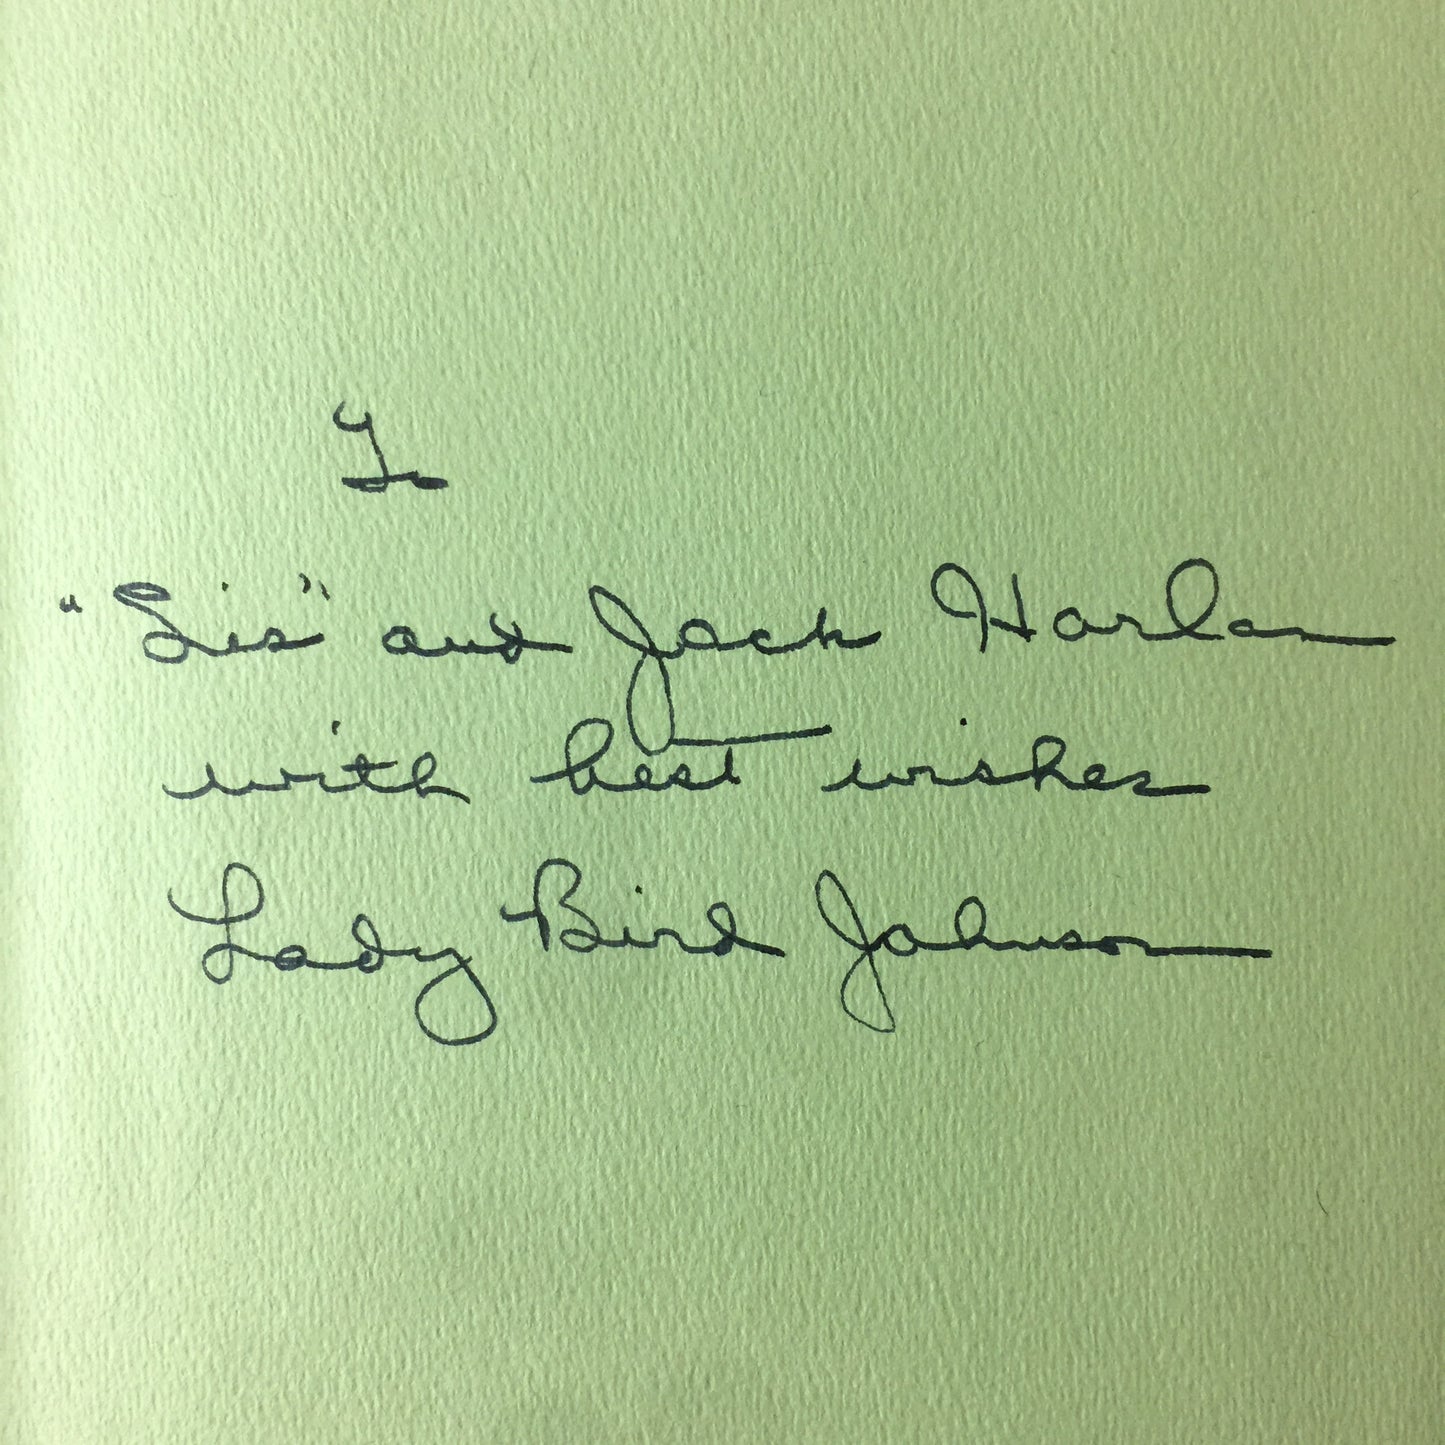 To
"Sis" and Jack Harlan
with best wishes
Lady Bird Johnson